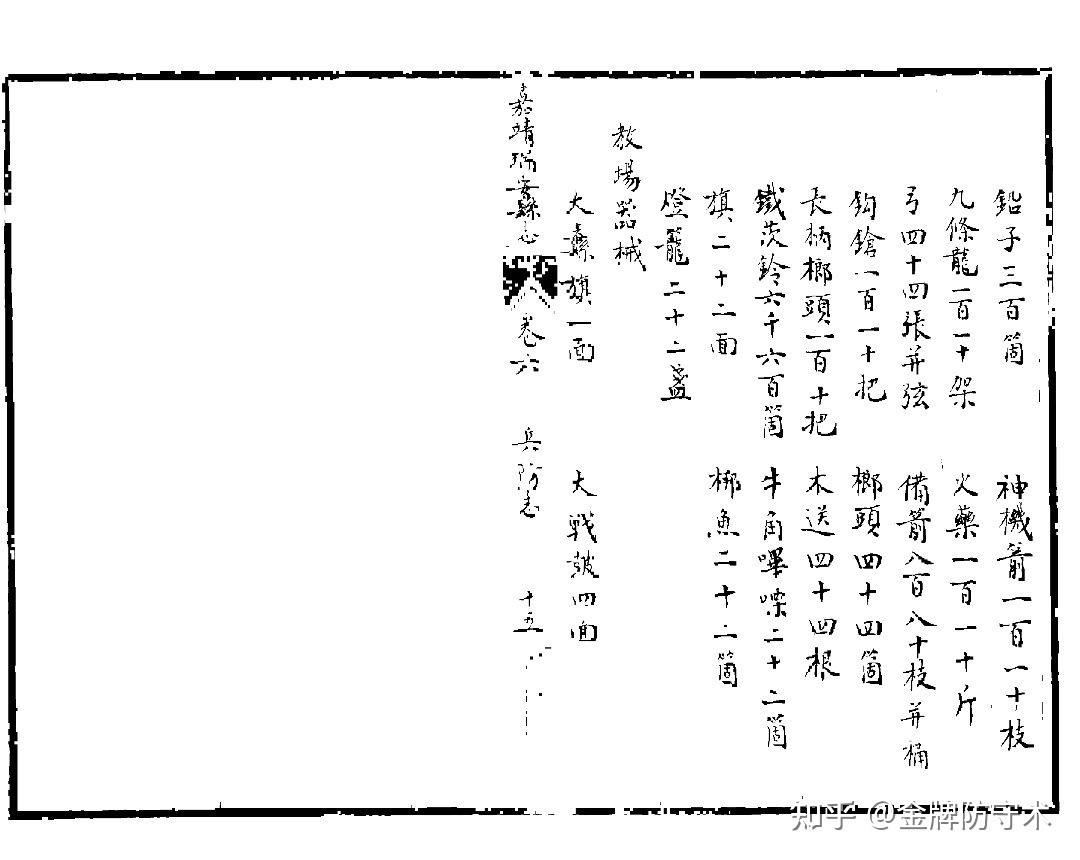 鉛子三百箇　神機箭一百一十枝
九條龍一百一十架　火藥一百一十斤
弓四十四張并弦　備箭八百八十枝并桶
鈎鎗一百一十把　榔頭四十四箇
長柄榔頭一百十把　木送四十四根
鐵茨鈴六千六百箇　牛角嗶㗚二十二箇
旗二十二面　梆魚二十二箇
燈籠二十二盞
教場器械
大纛旗一面　大戰皷四面
嘉靖瑞安縣志　卷六　兵防志　十五
知乎 @金牌防守术